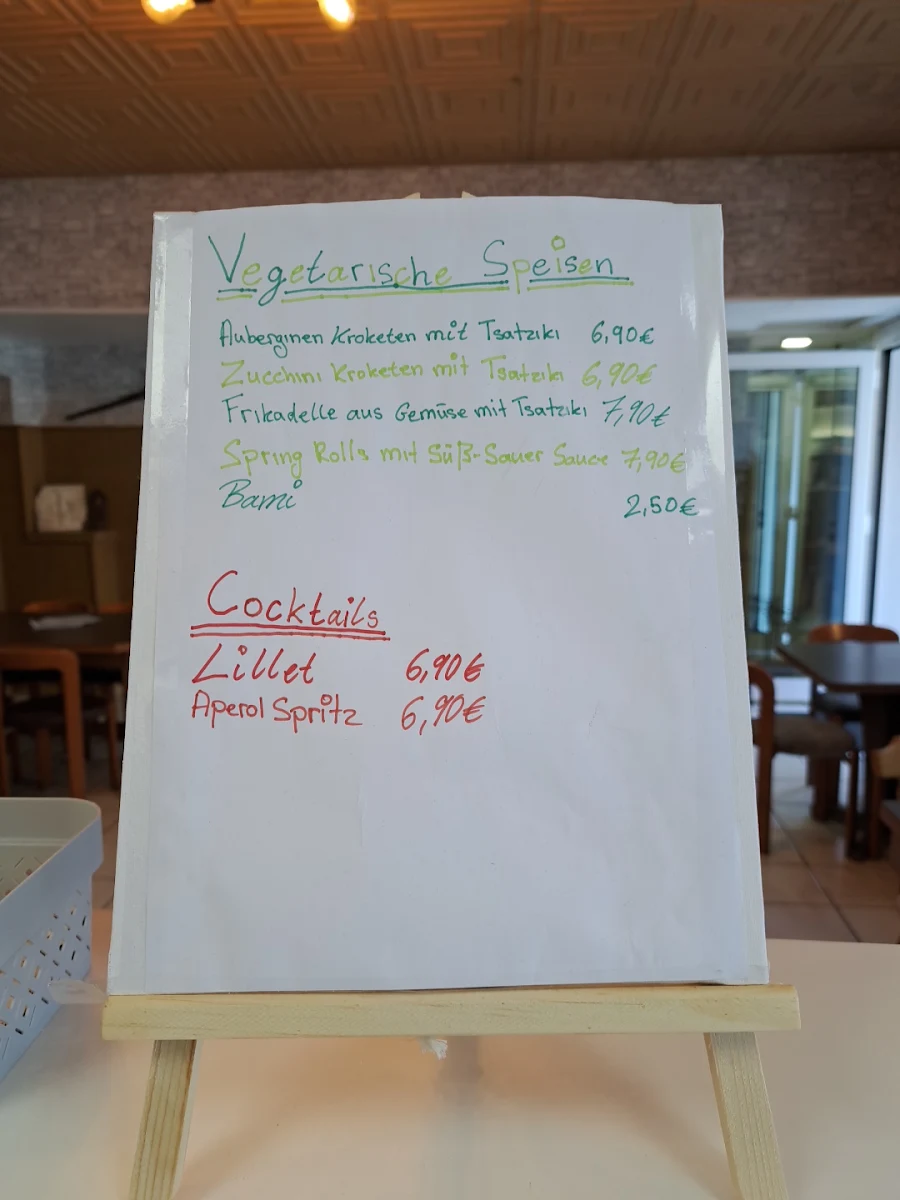 Vegetarische Speisen
Auberginen Kroketen mit Tsatziki 6,90€
Zucchini Kroketen mit Tsatziki 6,90€
Frikadelle aus Gemüse mit Tsatziki 7,90€
Spring Rolls mit Süß-Sauer Sauce 7,90€
Bami 2,50€
Cocktails
Lillet 6,90€
Aperol Spritz 6,90€